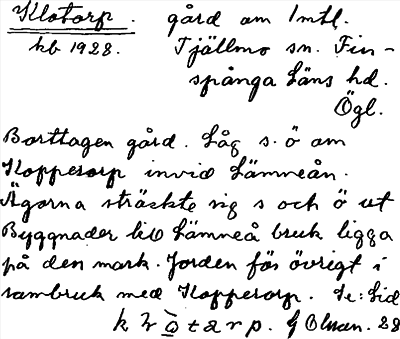 Klotorp. gård om 1 mtl.
kb 1928. Tjällmo sn. Fin-
spånga läns hd.
Ögl.
Borttagen gård. Låg s. ö om
Kopparorp invid Lämneån.
Ägorna sträckte sig s och ö ut
Byggnader till Lämneå bruk ligga
på den mark. Jorden förs övrigt i
sambruk med Kopparorp. Se: Lid
Olsson. 28